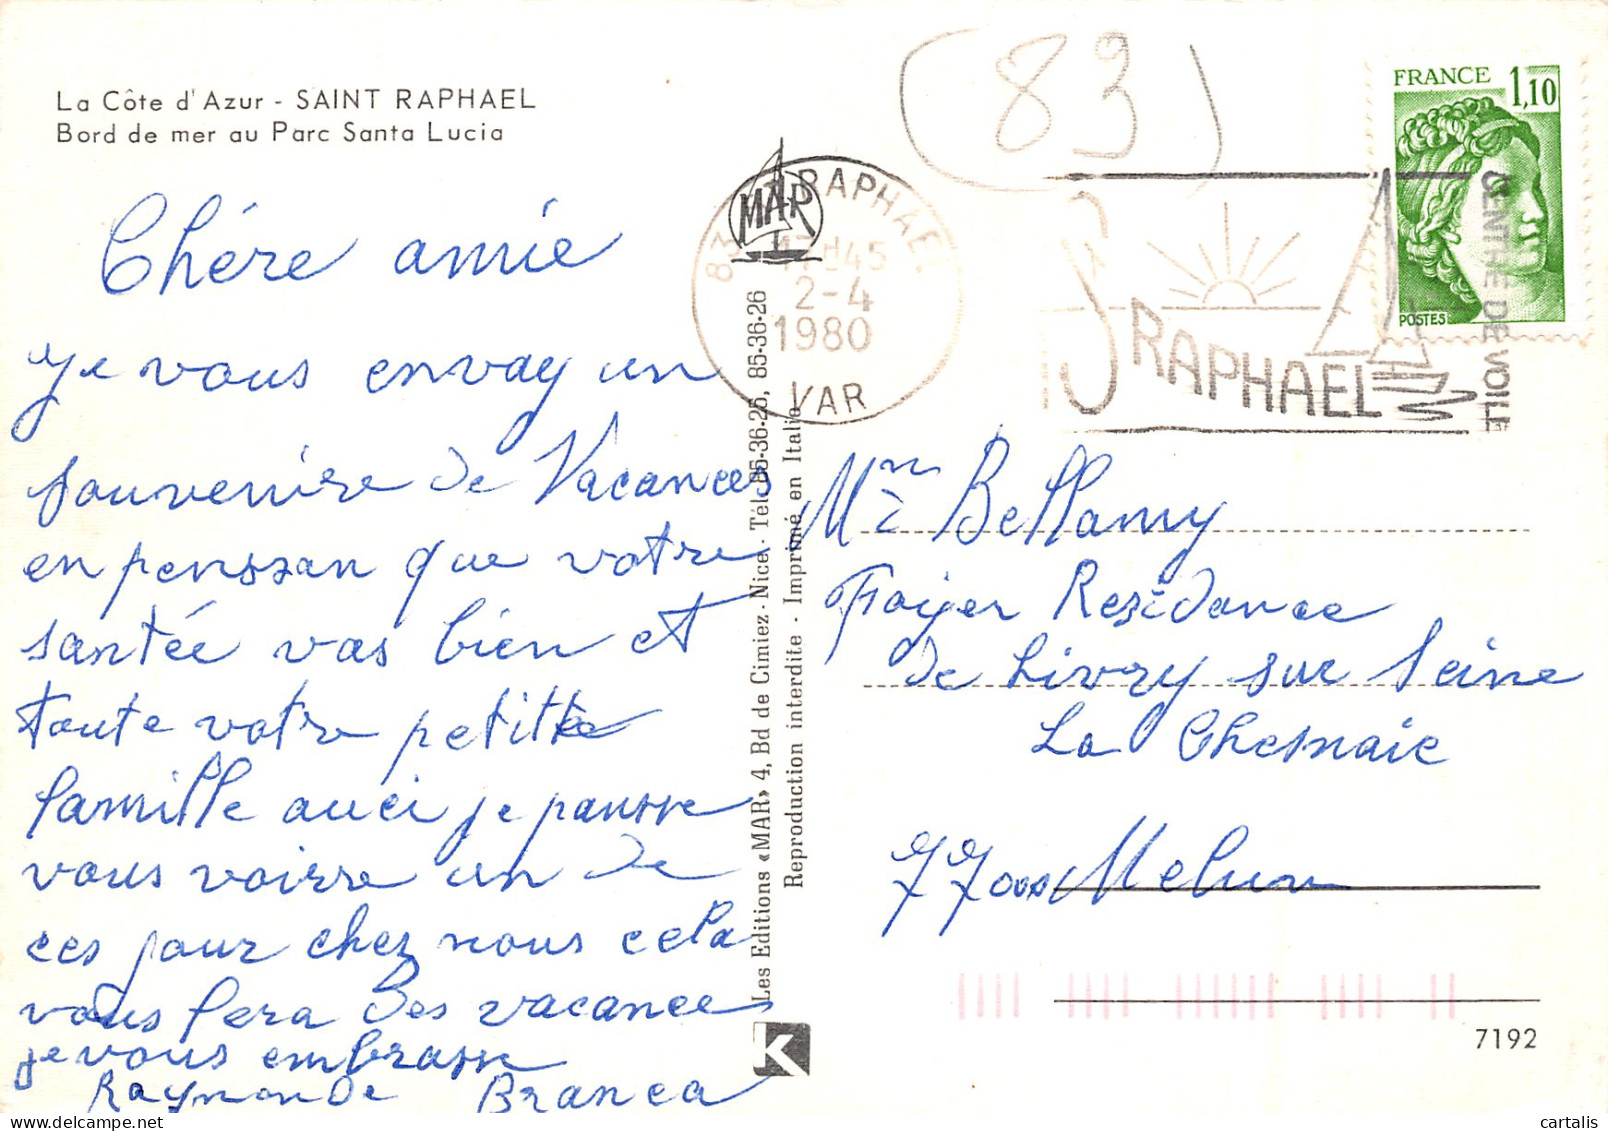 La Côte d'Azur - SAINT RAPHAEL
Bord de mer au Parc Santa Lucia
Chére amie
je vous envoy un
souvenire de Vacances
en penssan que votre
santée vas bien et
toute votre petitte
famille auci je pansse
vous voirre un de
ces jour chez nous cela
vous fera des vacances
je vous embrasse
Raymonde Branca
(83)
FRANCE 1,10
POSTES
83 RAPHAEL
17H45
2-4
1980
VAR
MAR
ST RAPHAEL
CENTRE DE VOILE
Les Editions «MAR» 4, Bd de Cimiez - Nice - Tél. 85-36-25, 85-36-26
Reproduction interdite - Imprimé en Italie
K
Mme Bellamy
Foiyer Residance
de Livry sur Seine
La Chesnaie
77000 Melun
7192
cartalis
cartalis.delcampe.net